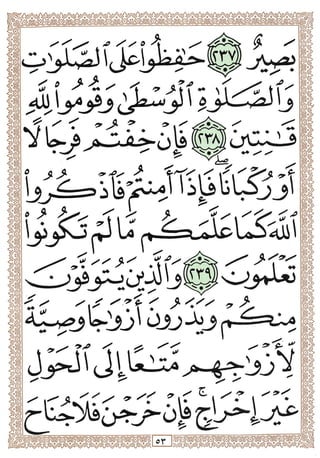 بَصِيرٌ ٢٣٧ حَـٰفِظُوا۟ عَلَى ٱلصَّلَوَٰتِ
وَٱلصَّلَوٰةِ ٱلْوُسْطَىٰ وَقُومُوا۟ لِلَّهِ
قَـٰنِتِينَ ٢٣٨ فَإِنْ خِفْتُمْ فَرِجَالًا
أَوْ رُكْبَانًا ۖ فَإِذَآ أَمِنتُمْ فَٱذْكُرُوا۟
ٱللَّهَ كَمَا عَلَّمَكُم مَّا لَمْ تَكُونُوا۟
تَعْلَمُونَ ٢٣٩ وَٱلَّذِينَ يُتَوَفَّوْنَ
مِنكُمْ وَيَذَرُونَ أَزْوَٰجًا وَصِيَّةً
لِّأَزْوَٰجِهِم مَّتَـٰعًا إِلَى ٱلْحَوْلِ
غَيْرَ إِخْرَاجٍ ۚ فَإِنْ خَرَجْنَ فَلَا جُنَاحَ
٥٣